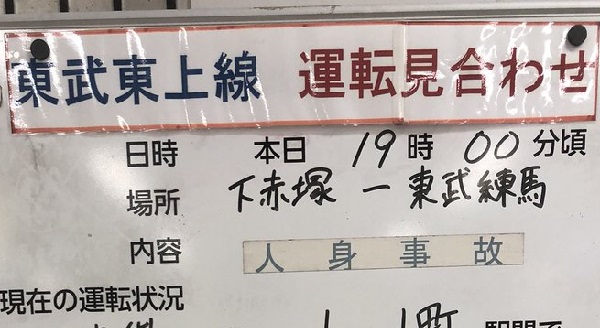 東武東上線 運転見合わせ
日時 本日 19時 00分頃
場所 下赤塚 ー 東武練馬
内容 人身事故
現在の運転状況